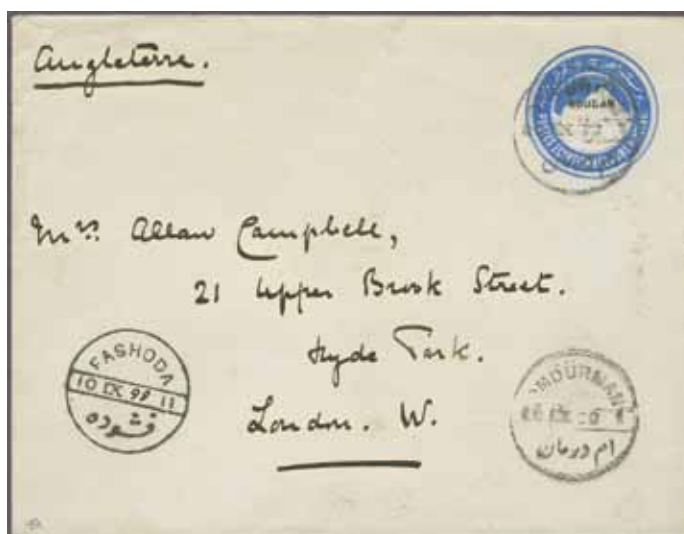 Angleterre.
SOUDAN
Mrs. Allan Campbell,
21 Upper Brook Street.
Hyde Park.
London. W.
FASHODA
10 IX 99 11
فشوده
OMDURMAN
IX
ام درمان